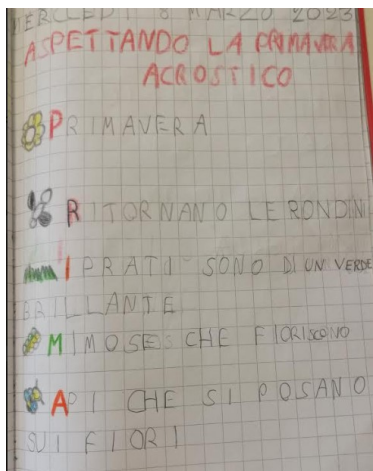 MERCLEDI 8 MARZO 2023
ASPETTANDO LA PRIMAVERA
ACROSTICO
PRIMAVERA
RITORNANO LE RONDINI
I PRATI SONO DI UN VERDE
BRILLANTE
MIMOSE CHE FIORISCONO
API CHE SI POSANO
SUI FIORI